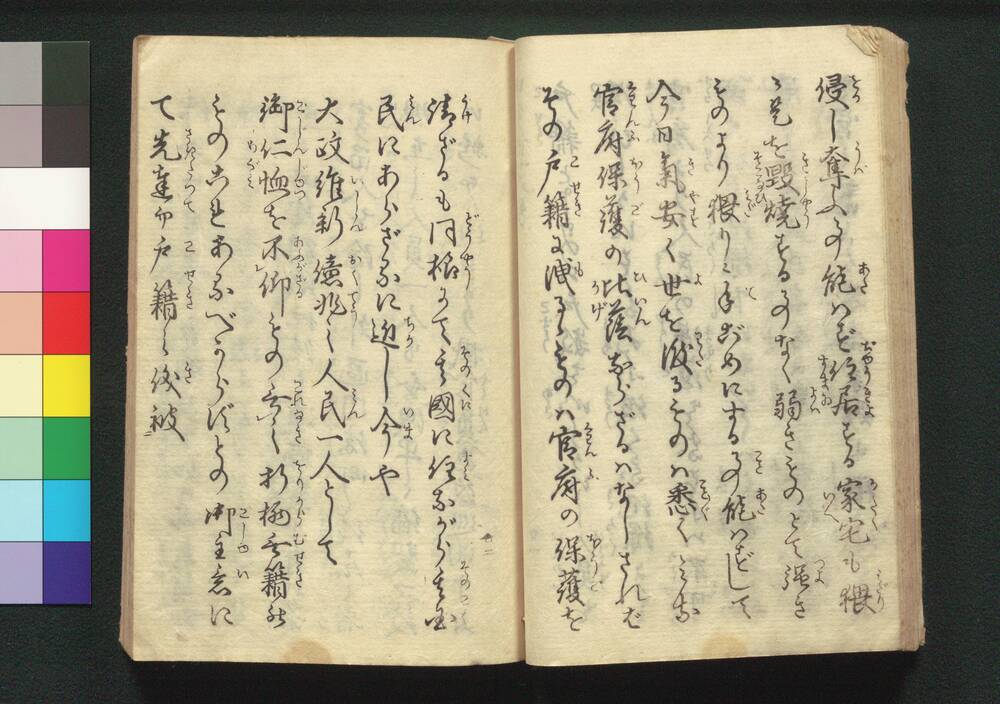 侵し奪ふ事能はず住居する家宅も猥
に是を毀焼する事なく弱きものとて強き
ものより猥りに手ごめにする事能はずして
今日氣安く世を渡るものハ悉くミな
官府保護の比蔭ならざるハなしされバ
その戸籍に洩るものハ官府の保護を
請ざるも同様にて其國に住ながら其國
民にあらざるに近し今や
大政維新億兆之人民一人として
御仁恤を不仰もの無く
ものこれあるべからずとの御主意に
て先達而戸籍之儀被